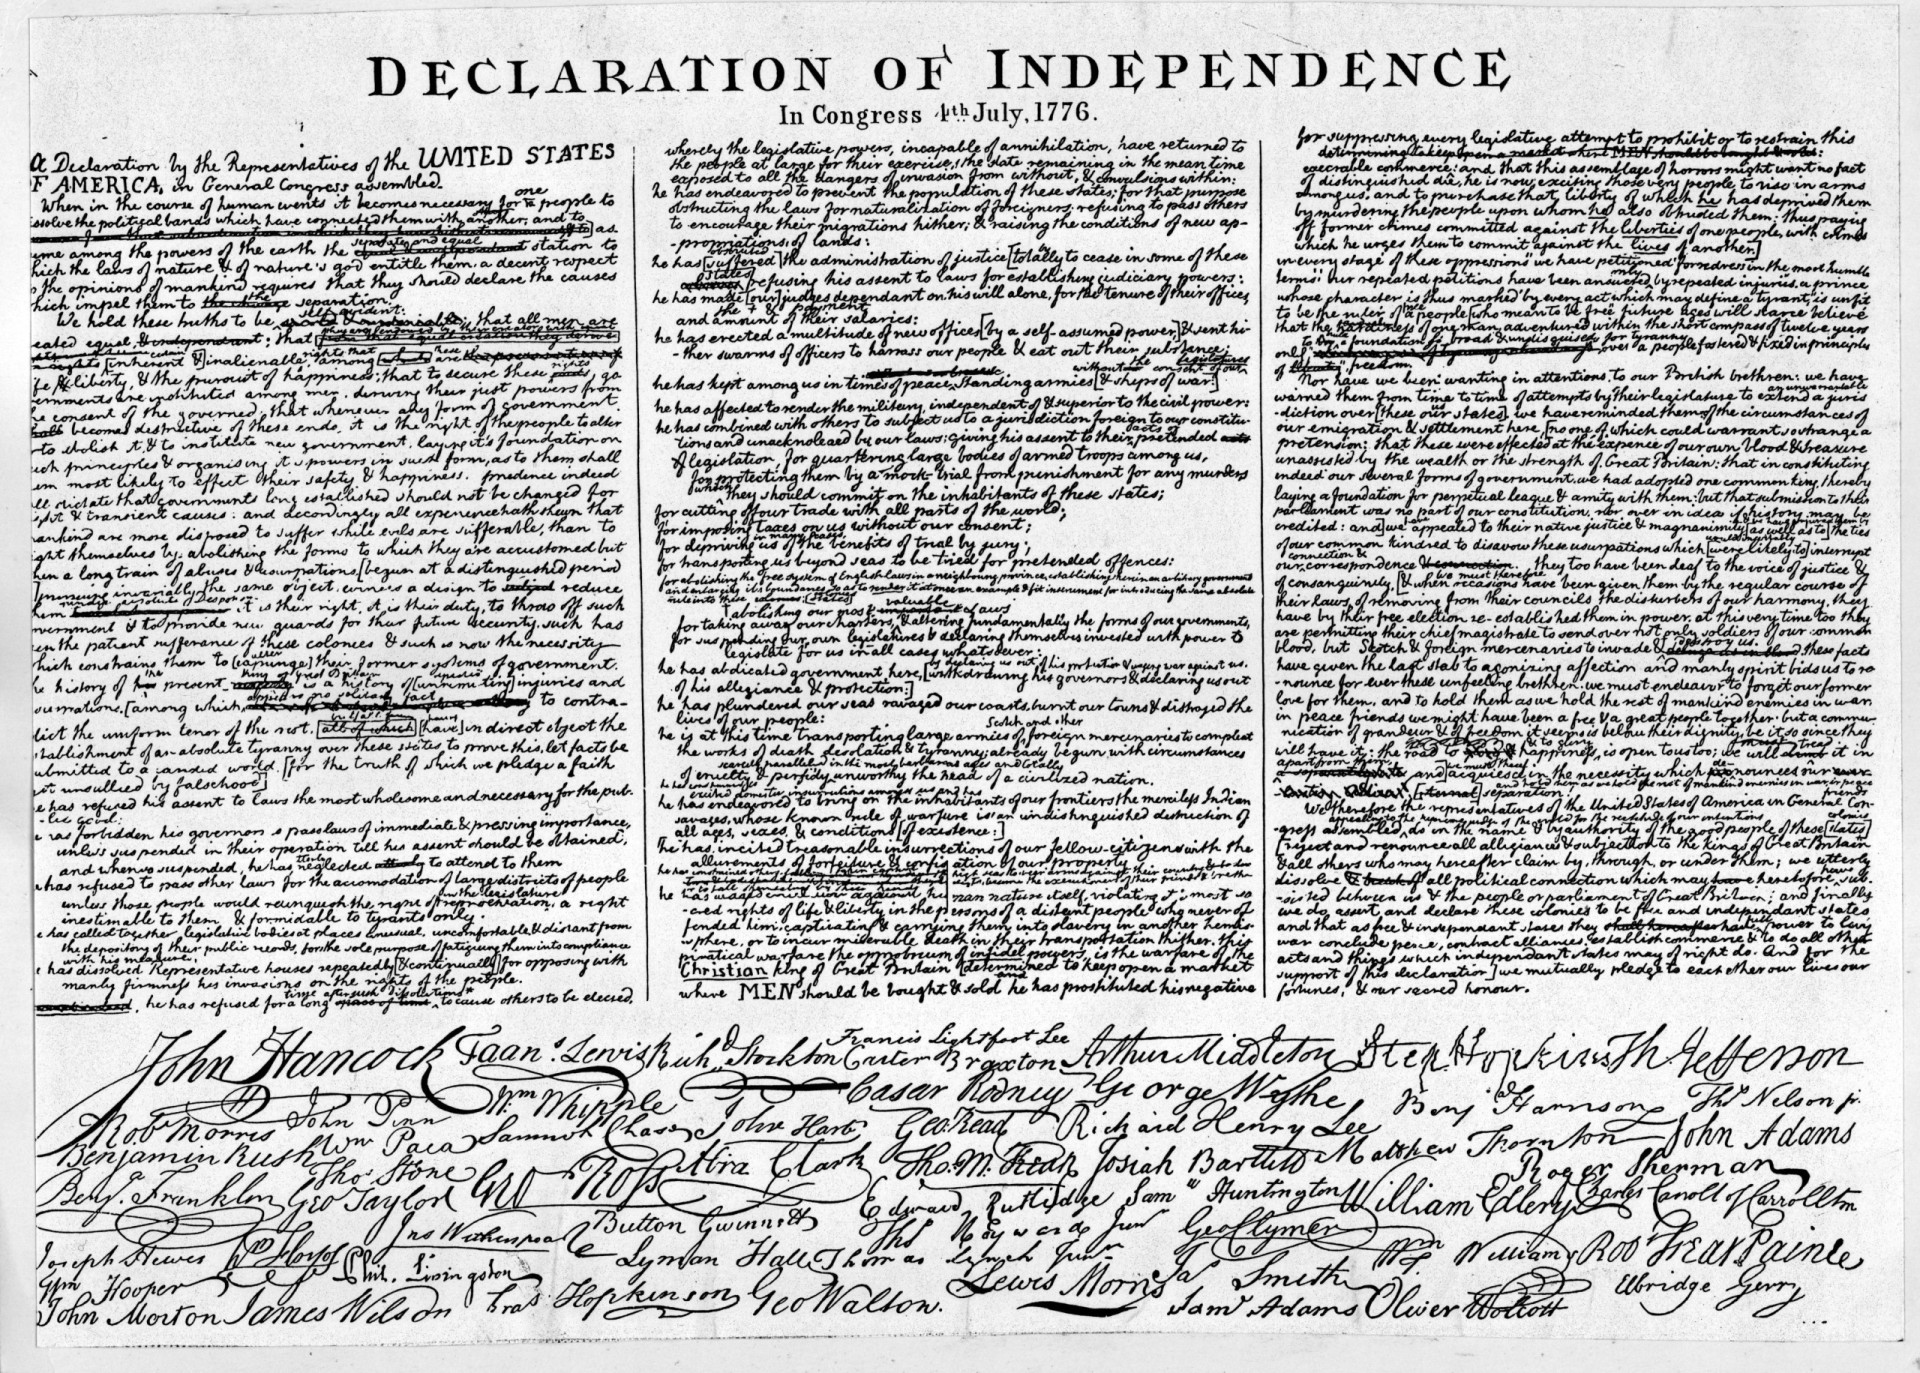 DECLARATION OF INDEPENDENCE
In Congress 4th July, 1776.
a Declaration by the Representatives of the UNITED STATES
F AMERICA, in General Congress assembled.
When in the course of human events it becomes necessary for one people to
issolve the political bands which have connected them with another, and to
as
ume among the powers of the earth the separate and equal station to
hich the laws of nature & of nature's god entitle them, a decent respect
o the opinions of mankind requires that they should declare the causes
hich impel them to the separation.
We hold these truths to be self evident; that all men are
eated equal, that
[inherent &] inalienable rights that among these are
fe & liberty, & the pursuit of happiness; that to secure these rights, go
ernments are instituted among men, deriving their just powers from
he consent of the governed; that whenever any form of government
becomes destructive of these ends, it is the right of the people to alter
r to abolish it, & to institute new government, laying it's foundation on
uch principles & organising it's powers in such form, as to them shall
em most likely to effect their safety & happiness. prudence indeed
ll dictate that governments long established should not be changed for
ight & transient causes: and accordingly all experience hath shewn that
ankind are more disposed to suffer while evils are sufferable, than to
ght themselves by abolishing the forms to which they are accustomed but
hen a long train of abuses & usurpations, [begun at a distinguished period
pursuing invariably the same object, evinces a design to reduce
hem under absolute Despotism it is their right, it is their duty, to throw off such
vernment & to provide new guards for their future security, such has
een the patient sufferance of these colonies & such is now the necessity
hich constrains them to alter [expunge] their former systems of government.
he history of the present King of Great Britain is a history of repeated [unremitting] injuries and
surpations, [among which to contra-
dict the uniform tenor of the rest, [all of which] [have] in direct object the
stablishment of an absolute tyranny over these states, to prove this, let facts be
ubmitted to a candid world. [for the truth of which we pledge a faith
et unsullied by falsehood]
e has refused his assent to laws the most wholesome and necessary for the pub-
-lic good:
e has forbidden his governors to pass laws of immediate & pressing importance,
unless suspended in their operation till his assent should be obtained;
and when so suspended, he has utterly neglected to attend to them
e has refused to pass other laws for the accomodation of large districts of people
unless those people would relinquish the right of representation in the legislature, a right
inestimable to them & formidable to tyrants only.
e has called together legislative bodies at places unusual, uncomfortable & distant from
the depository of their public records, for the sole purpose of fatiguing them into compliance
with his measures.
e has dissolved Representative houses repeatedly [& continually] for opposing with
manly firmness his invasions on the rights of the people.
he has refused for a long time after such dissolutions to cause others to be elected,
whereby the legislative powers, incapable of annihilation, have returned to
the people at large for their exercise, the state remaining in the mean time
exposed to all the dangers of invasion from without, & convulsions within:
he has endeavored to prevent the population of these states; for that purpose
obstructing the laws for naturalization of foreigners; refusing to pass others
to encourage their migrations hither; & raising the conditions of new ap-
-propriations of lands:
he has [suffered] the administration of justice [totally to cease in some of these
states refusing his assent to laws for establishing judiciary powers:
he has made [our] judges dependant on his will alone, for the tenure of their offices,
the & payment
and amount of their salaries:
he has erected a multitude of new offices [by a self-assumed power] & sent hi-
-ther swarms of officers to harrass our people & eat out their substance:
he has kept among us in times of peace, standing armies [& ships of war:] without the consent of our legislatures
he has affected to render the military, independent of & superior to the civil power:
he has combined with others to subject us to a jurisdiction foreign to our constitu-
tions and unacknoleaed by our laws; giving his assent to their pretended acts
of legislation, for quartering large bodies of armed troops among us,
for protecting them by a mock-trial from punishment for any murders
which they should commit on the inhabitants of these states;
for cutting off our trade with all parts of the world;
for imposing taxes on us without our consent;
for depriving us in many cases of the benefits of trial by jury;
for transporting us beyond seas to be tried for pretended offences:
for abolishing the free system of English laws in a neighbouring province, establishing therein an arbitrary government
and enlarging its boundaries so as to render it at once an example & fit instrument for introducing the same absolute
rule into these [states]
abolishing our most valuable laws
for taking away our charters, & altering fundamentally the forms of our governments,
for suspending our own legislatures & declaring themselves invested with power to
legislate for us in all cases whatsoever:
he has abdicated government here, [withdrawing his governors & declaring us out
by declaring us out of his protection & waging war against us.
of his allegiance & protection:]
he has plundered our seas ravaged our coasts, burnt our towns & distroyed the
lives of our people:
he is at this time transporting large armies of Scotch and other foreign mercenaries to compleat
the works of death desolation & tyranny, already begun with circumstances
scarcely paralleled in the most barbarous ages and totally
of cruelty & perfidy unworthy the head of a civilized nation.
excited domestic insurrections among us and has
he has endeavored to bring on the inhabitants of our frontiers the merciless Indian
savages, whose known rule of warfare is an undistinguished destruction of
all ages, sexes, & conditions [of existence:]
[he has incited treasonable insurrections of our fellow-citizens with the
allurements of forfeiture & confiscation of our property
he has waged cruel war against human nature itself, violating it's most sa-
-cred rights of life & liberty in the persons of a distant people who never of
fended him, captivating & carrying them into slavery in another hemis-
-phere, or to incur miserable death in their transportation thither. this
piratical warfare the opprobrium of infidel powers, is the warfare of the
Christian king of Great Britain [determined to keep open a market
where MEN should be bought & sold he has prostituted his negative
for suppressing every legislative attempt to prohibit or to restrain this
execrable commerce: and that this assemblage of horrors might want no fact
of distinguished die, he is now exciting those very people to rise in arms
among us, and to purchase that liberty of which he has deprived them
by murdering the people upon whom he also obtruded them: thus paying
off former crimes committed against the liberties of one people, with crimes
which he urges them to commit against the lives of another.]
in every stage of these oppressions we have petitioned for redress in the most humble
terms: our repeated petitions have been answered only by repeated injuries. a prince
whose character is thus marked by every act which may define a tyrant, is unfit
to be the ruler of a people [who mean to be free. future ages will scarce believe
that the hardiness of one man, adventured within the short compass of twelve years
only, to build a foundation so broad & undisguised for tyranny over a people fostered & fixed in principles
of freedom.
Nor have we been wanting in attentions to our British brethren: we have
warned them from time to time of attempts by their legislature to extend a juris
-diction over [these our states] we have reminded them of the circumstances of
our emigration & settlement here, [no one of which could warrant so strange a
pretension: that these were effected at the expence of our own blood & treasure
unassisted by the wealth or the strength of Great Britain: that in constituting
indeed our several forms of government, we had adopted one common king, thereby
laying a foundation for perpetual league & amity with them: but that submission to their
parliament was no part of our constitution, nor ever in idea if history may be
credited: and] we have appealed to their native justice & magnanimity as well as to the ties
of our common kindred to disavow these usurpations which [were likely to] interrupt
our connection & correspondence. they too have been deaf to the voice of justice &
of consanguinity, [& when occasions have been given them by the regular course of
their laws, of removing from their councils the disturbers of our harmony, they
have by their free election re-established them in power. at this very time too they
are permitting their chief magistrate to send over not only soldiers of our common
blood, but Scotch & foreign mercenaries to invade & destroy us. these facts
have given the last stab to agonizing affection and manly spirit bids us to re
-nounce for ever these unfeeling brethren. we must endeavor to forget our former
love for them, and to hold them as we hold the rest of mankind enemies in war,
in peace friends we might have been a free & a great people together. but a commu-
nication of grandeur & of freedom it seems is below their dignity. be it so since they
will have it: the road to happiness is open to us too; we will tread it
apart from them, and] acquiesce in the necessity which denounces our
[eternal] separation.
We therefore the representatives of the United States of America in General Con-
appealing to the supreme judge of the world for the rectitude of our intentions
-gress assembled, do in the name & by authority of the good people of these [states]
[reject and renounce all allegiance & subjection to the kings of Great Britain
& all others who may hereafter claim by, through, or under them; we utterly
dissolve all political connection which may heretofore have sub-
-sisted between us & the people or parliament of Great Britain; and finally
we do assert and declare these colonies to be free and independant states
and that as free & independant states they have full power to levy
war conclude peace, contract alliances, establish commerce & to do all other
acts and things which independant states may of right do. And for the
support of this declaration] we mutually pledge to each other our lives our
fortunes, & our sacred honour.
John Hancock Faans. Lewis Richd. Stockton Francis Lightfoot Lee Carter Braxton Arthur Middleton Step. Hopkins Th. Jefferson
Robt Morris John Penn Wm Whipple Casar Rodney George Wythe Benj Harrison Thos Nelson jr.
Benjamin Rush Wm Paca Samuel Chase John Hart Geo. Read Richard Henry Lee Matthew Thornton John Adams
Benj. Franklin Thos Stone Geo Taylor Geo Ross Abra Clark Tho. M. Kean Josiah Bartlett Roger Sherman
Joseph Hewes Wm Floyd Jno Witherspoon Button Gwinnett Edward Rutledge Sam Huntington William Ellery Charles Carroll of Carrollton
Wm Hooper Phil. Livingston Lyman Hall Thos Heywards Junr Thomas Lynch Junr. Geo Clymer Wm Williams Rob Treat Paine
John Morton James Wilson Fras Hopkinson Geo Walton. Lewis Morris Jas Smith Saml Adams Oliver Wolcott Elbridge Gerry